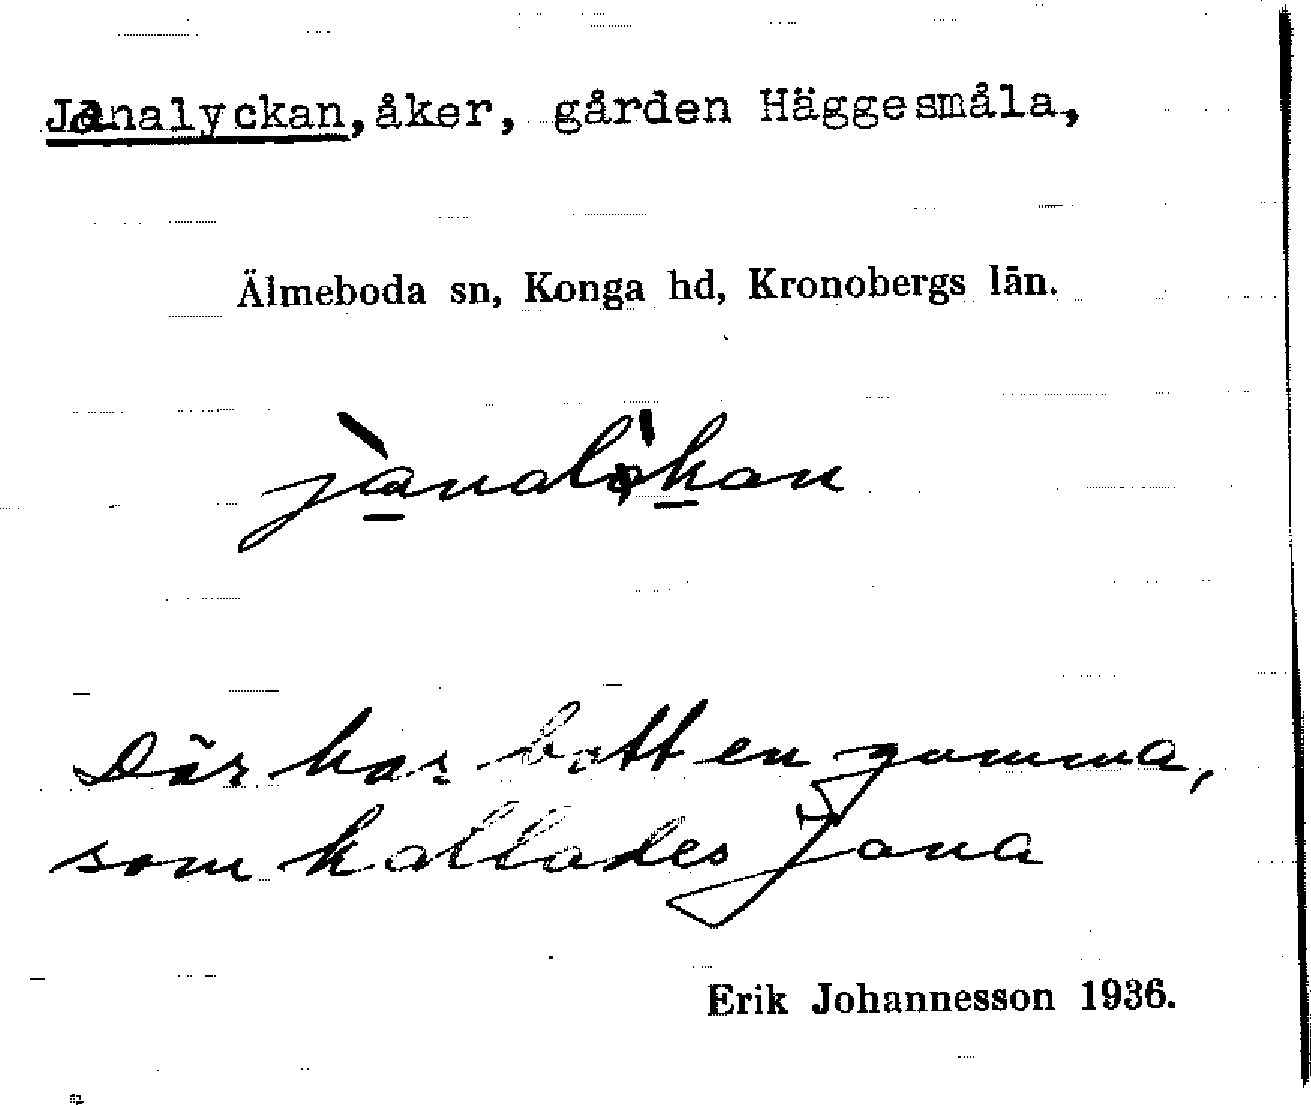 Janalyckan, åker, gården Häggesmåla,
Älmeboda sn, Konga hd, Kronobergs län.
Där har bott en gumma,
som kallades Jana
Erik Johannesson 1936.